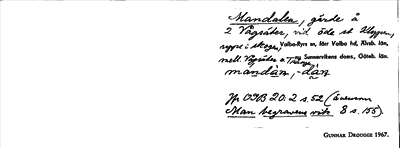 Mandalen, gärde å
2 Vågsäter, vid öde st Ulyggen,
uppe i skogen, Valbo-Ryrs sn, förr Valbo hd, Älvsb. län,
mell. Vågsäter o. Trång ny Sunnervikens doms, Göteb. län.
mandàn, -dän
Jfr OGB 20:2 s. 52 (
Man begravens vits 8 s. 155).
GUNNAR DROUGGE 1967.